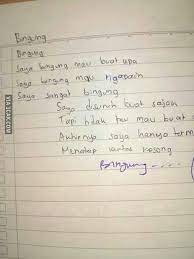 Bingung
Bingung
Saya bingung mau buat apa
Saya bingung mau ngapain
Saya sangat bingung
Saya disuruh buat sajak
Tapi tidak tau mau buat
Akhirnya saya hanya term
Menatap kertas kosong
Bingung.....
VIA 9GAG.COM